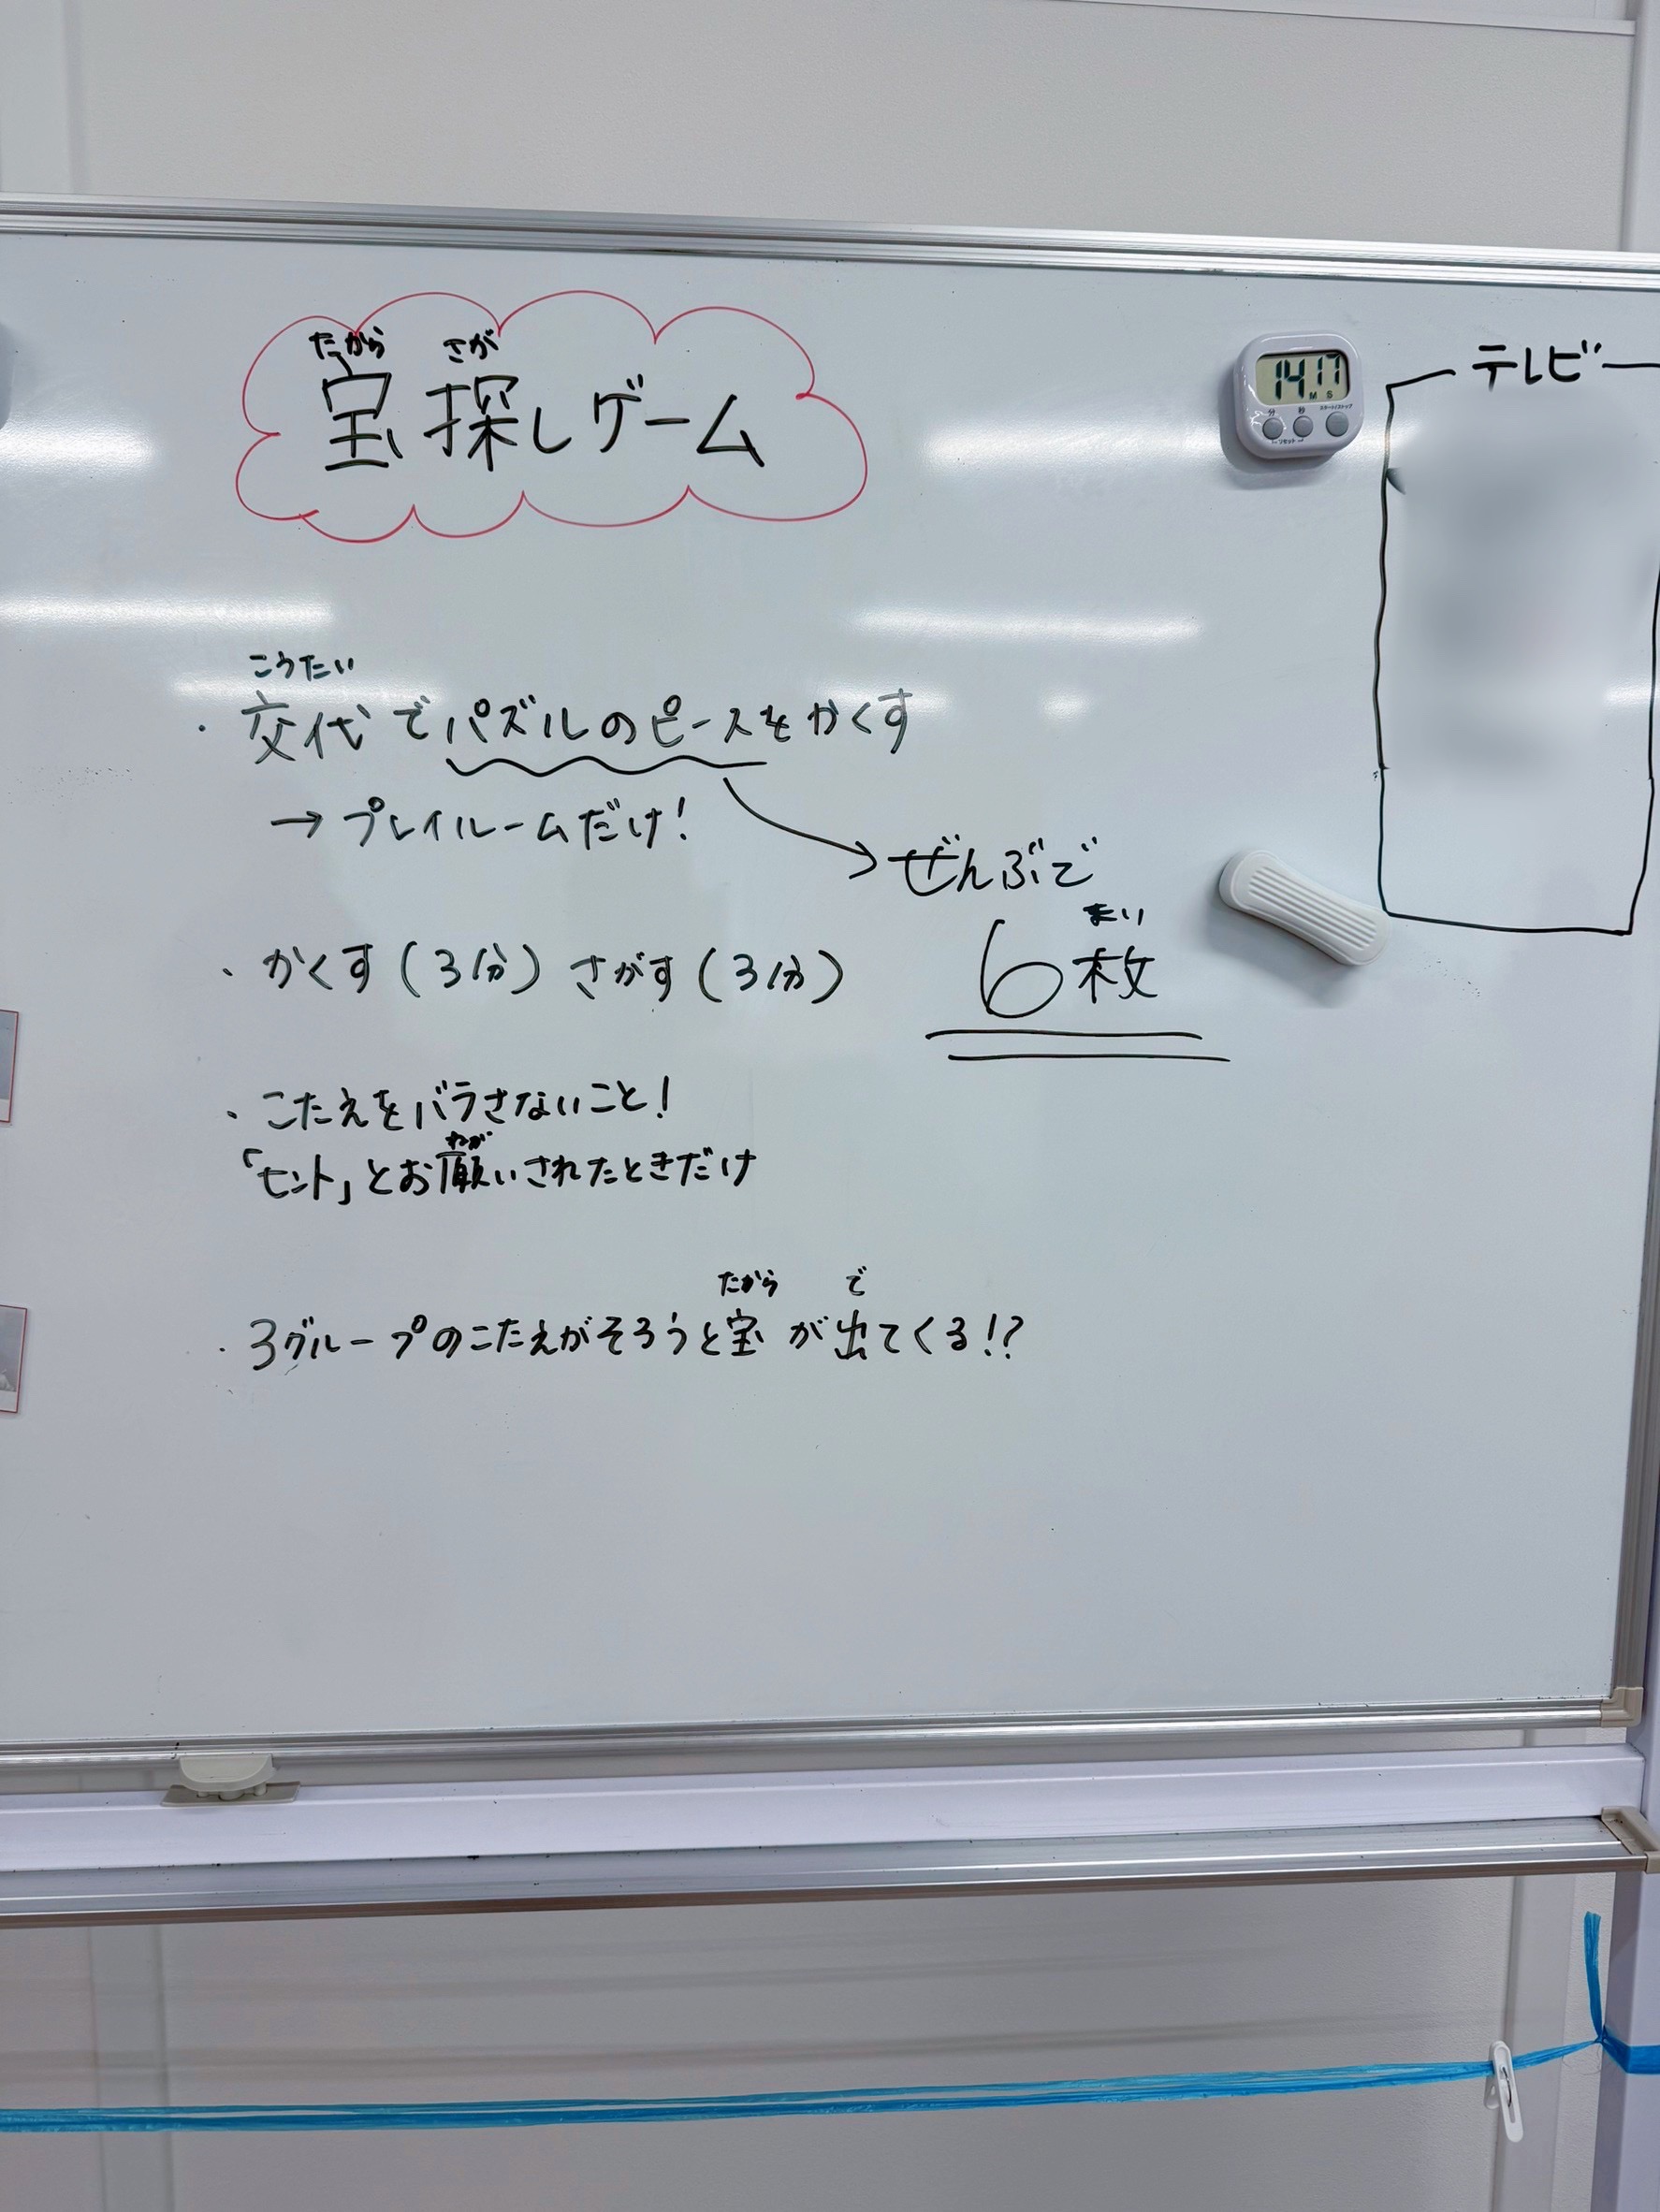 たから さが
宝探しゲーム
14.17
M S
分 秒 スタート/ストップ
リセット
テレビ
こうたい
・交代でパズルのピースをかくす
→プレイルームだけ!
ぜんぶで
まい
6枚
・かくす(3分) さがす(3分)
・こたえをバラさないこと!
ねが
「ヒント」とお願いされたときだけ
たから で
・3グループのこたえがそろうと宝が出てくる!?